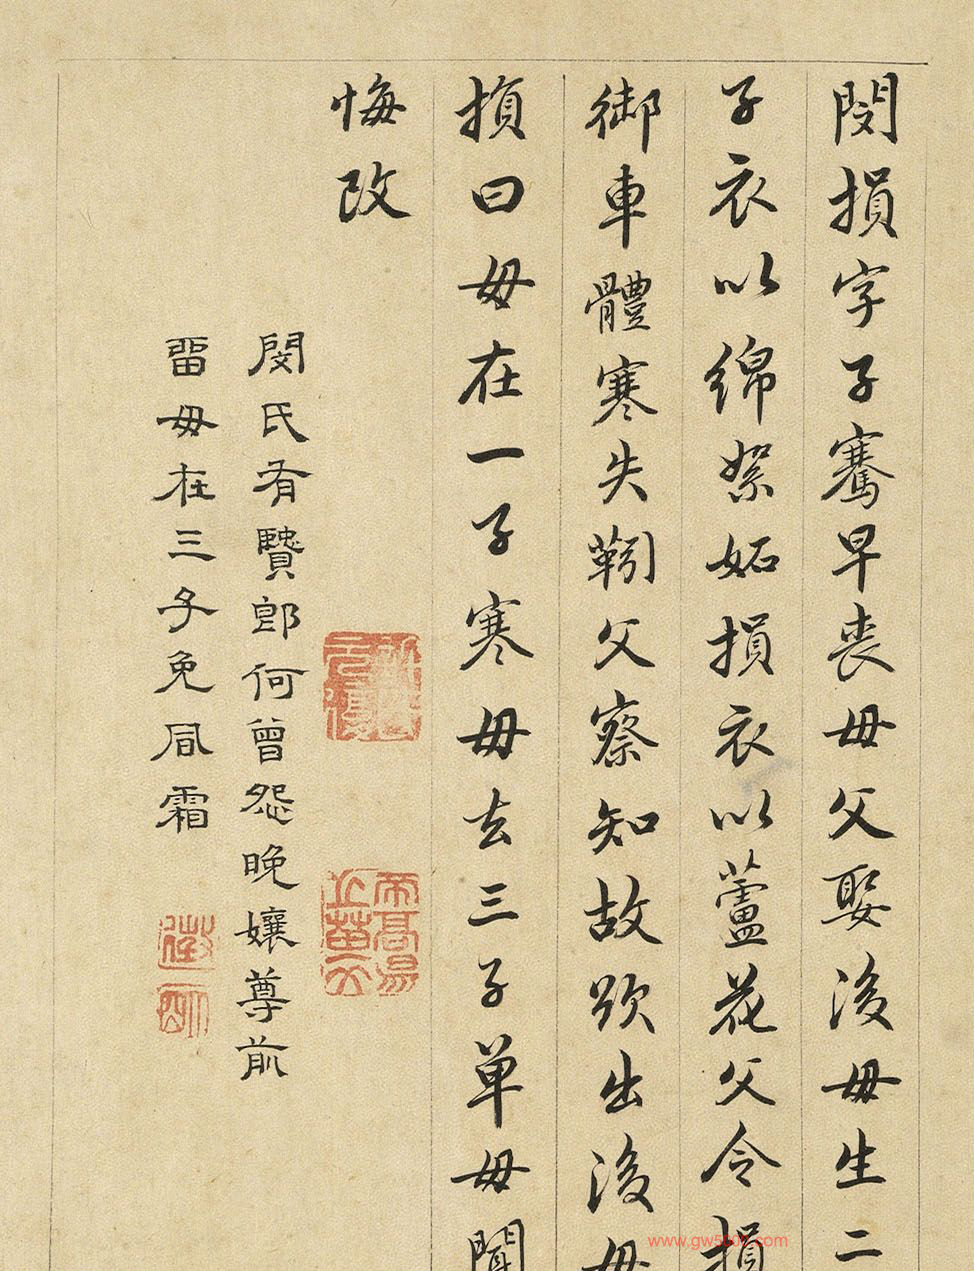 閔損字子騫早丧母父娶後母生二
子衣以綿絮妬損衣以蘆花父令損
御車體寒失靷父察知故欲出後母
損曰母在一子寒母去三子单母聞
悔改
閔氏有賢郎何曾怨晚孃尊前
畱母在三子免風霜
www.gw5000.com